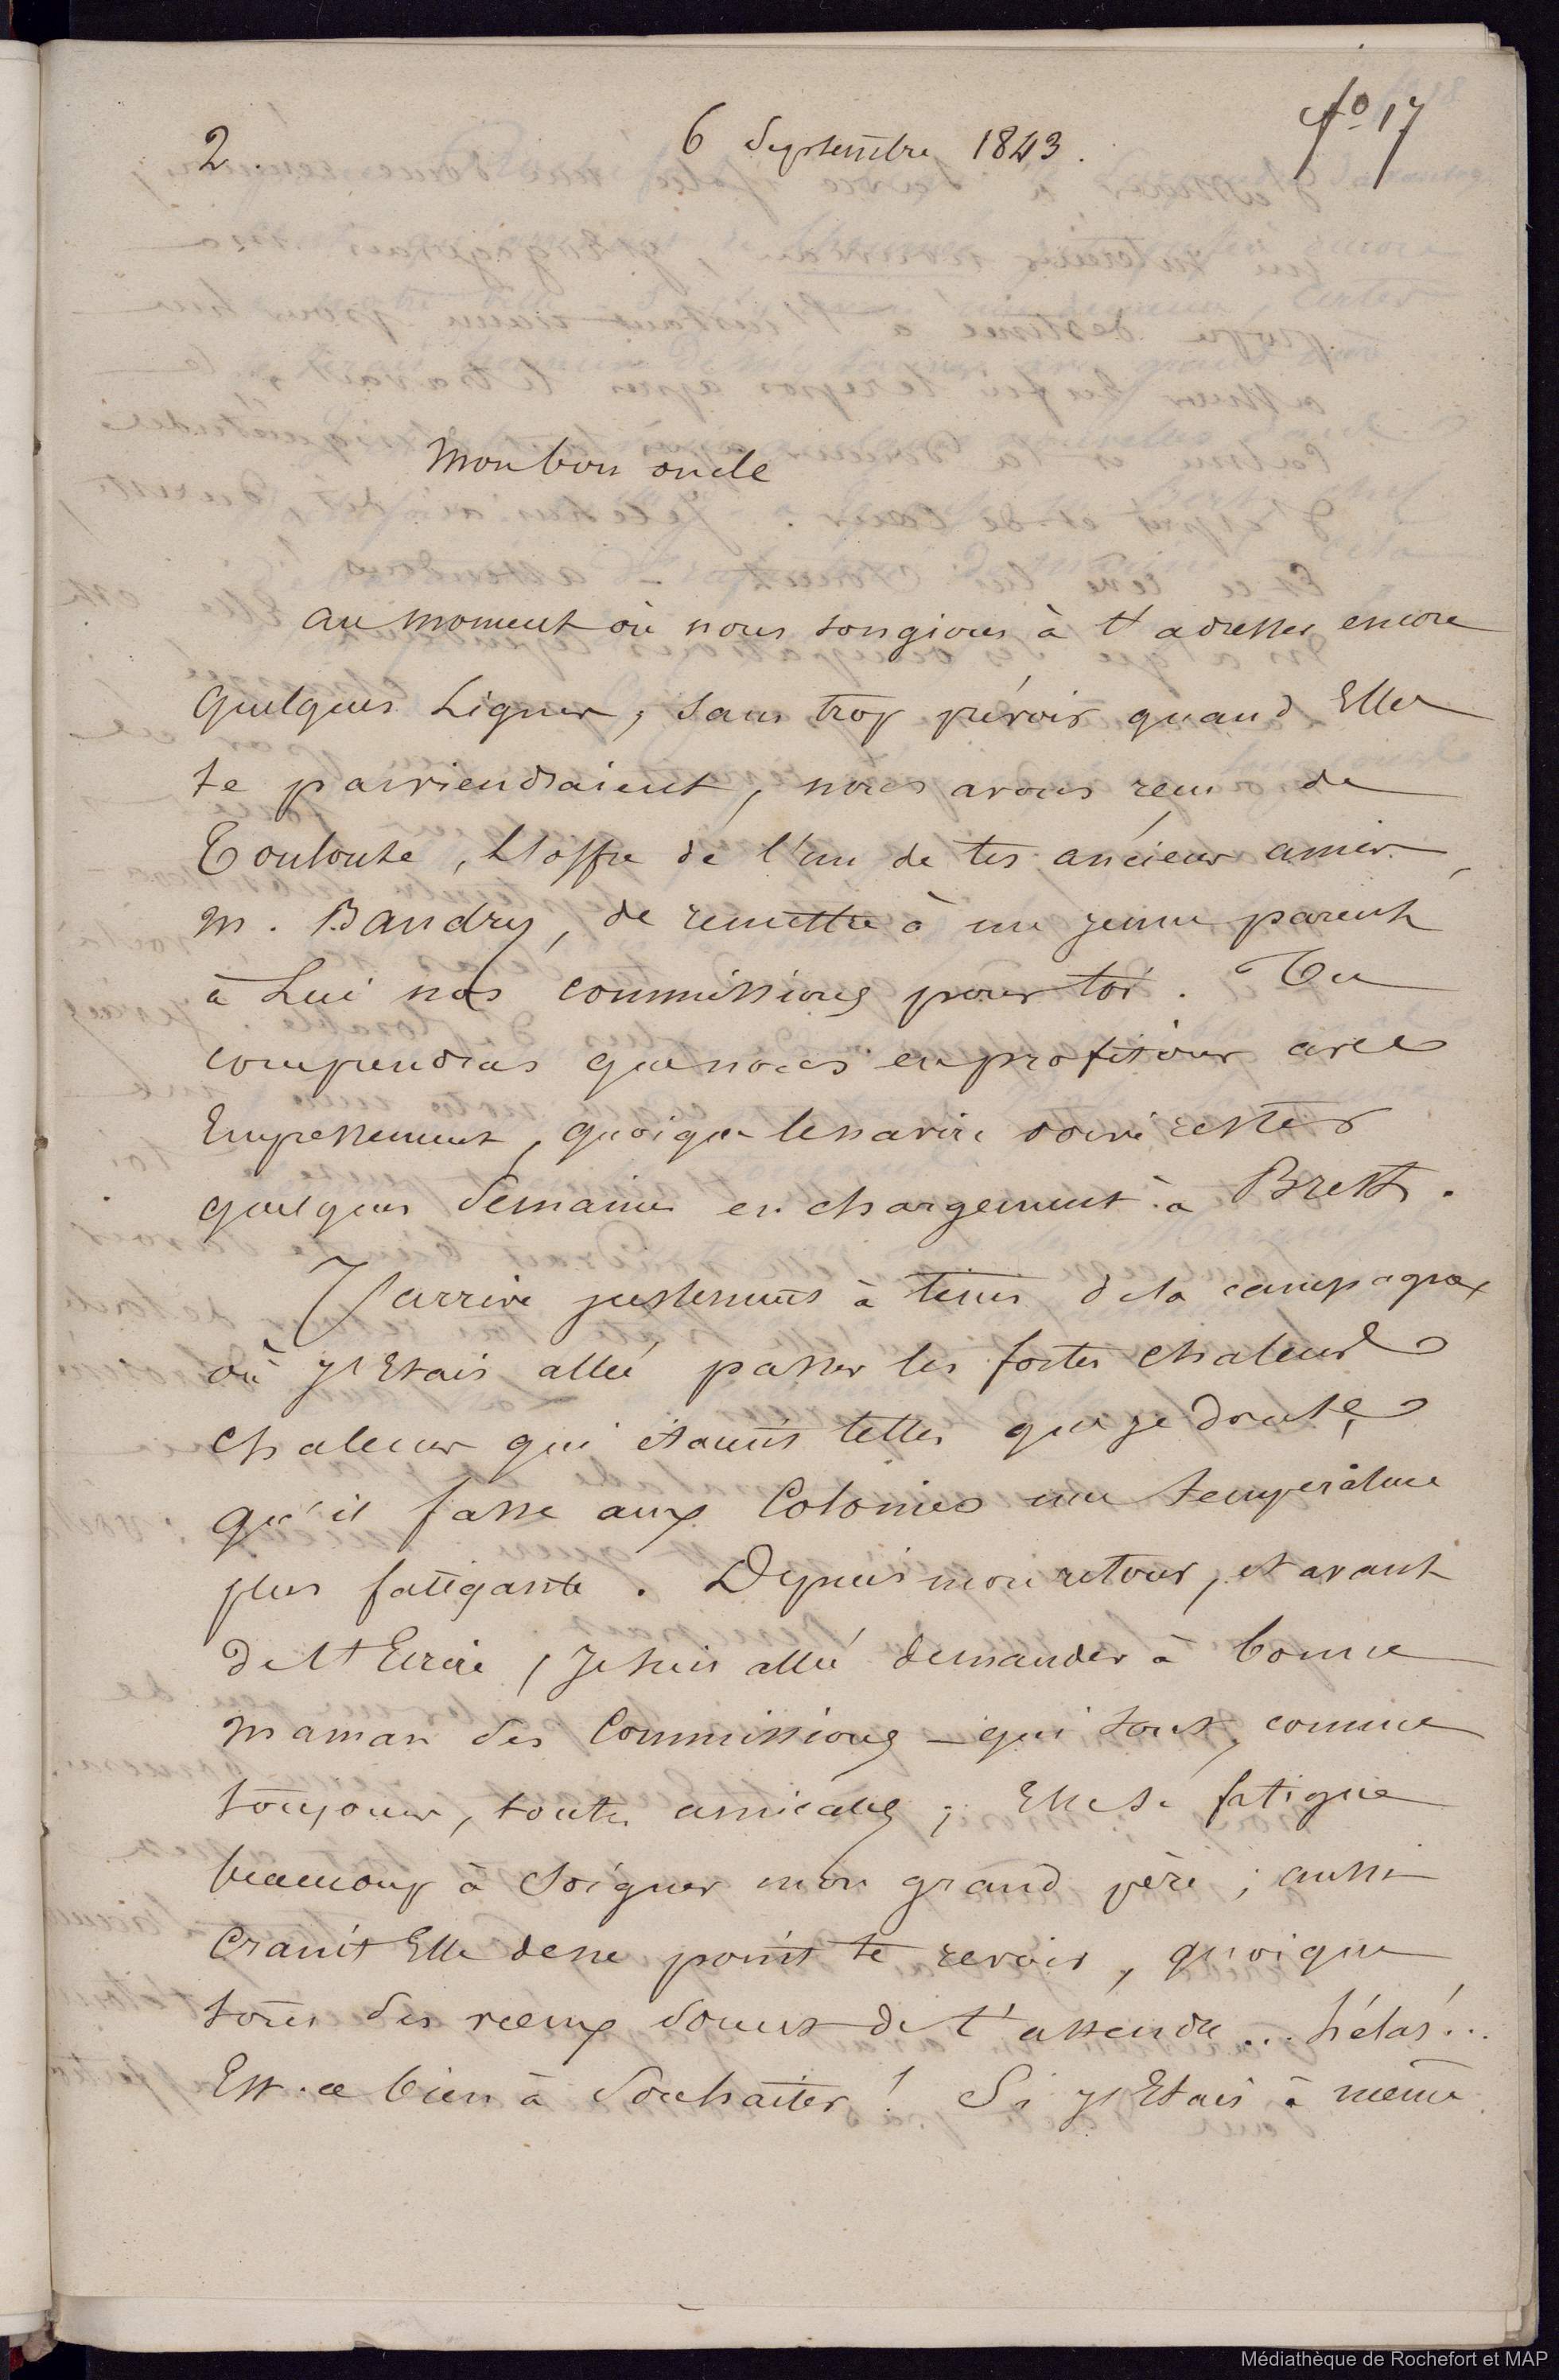 2.
6 Septembre 1843.
fo 17
Mon bon oncle
au moment où nous songions à t'adresser encore
quelques Lignes, sans trop prévoir quand Elles
te parviendraient, nous avons reçu de
Toulouse, l'offre de l'un de tes anciens amis,
M. Baudry, de remettre à un jeune parent
à Lui nos commissions pour toi. Tu
comprendras que nous en profitons avec
Empressement, quoique le navire doive rester
quelques Semaines en chargement à Brest.
J'arrive justement à tems de la campagne,
où j'Etais allé passer les fortes chaleurs
chaleurs qui étaient telles que je doute,
qu'il fasse aux Colonies une température
plus fatigante. Depuis mon retour, et avant
de t'Ecrire, je suis allé demander à bonne
maman des Commissions - qui sont, comme
toujours, toutes amicales; Elle se fatigue
beaucoup à Soigner mon grand père; aussi
craint Elle de ne point te revoir, quoique
tous ses vœux soient de t'attendre... hélas!...
Est-ce bien à Souhaiter! Si j'Etais à même
Médiathèque de Rochefort et MAP